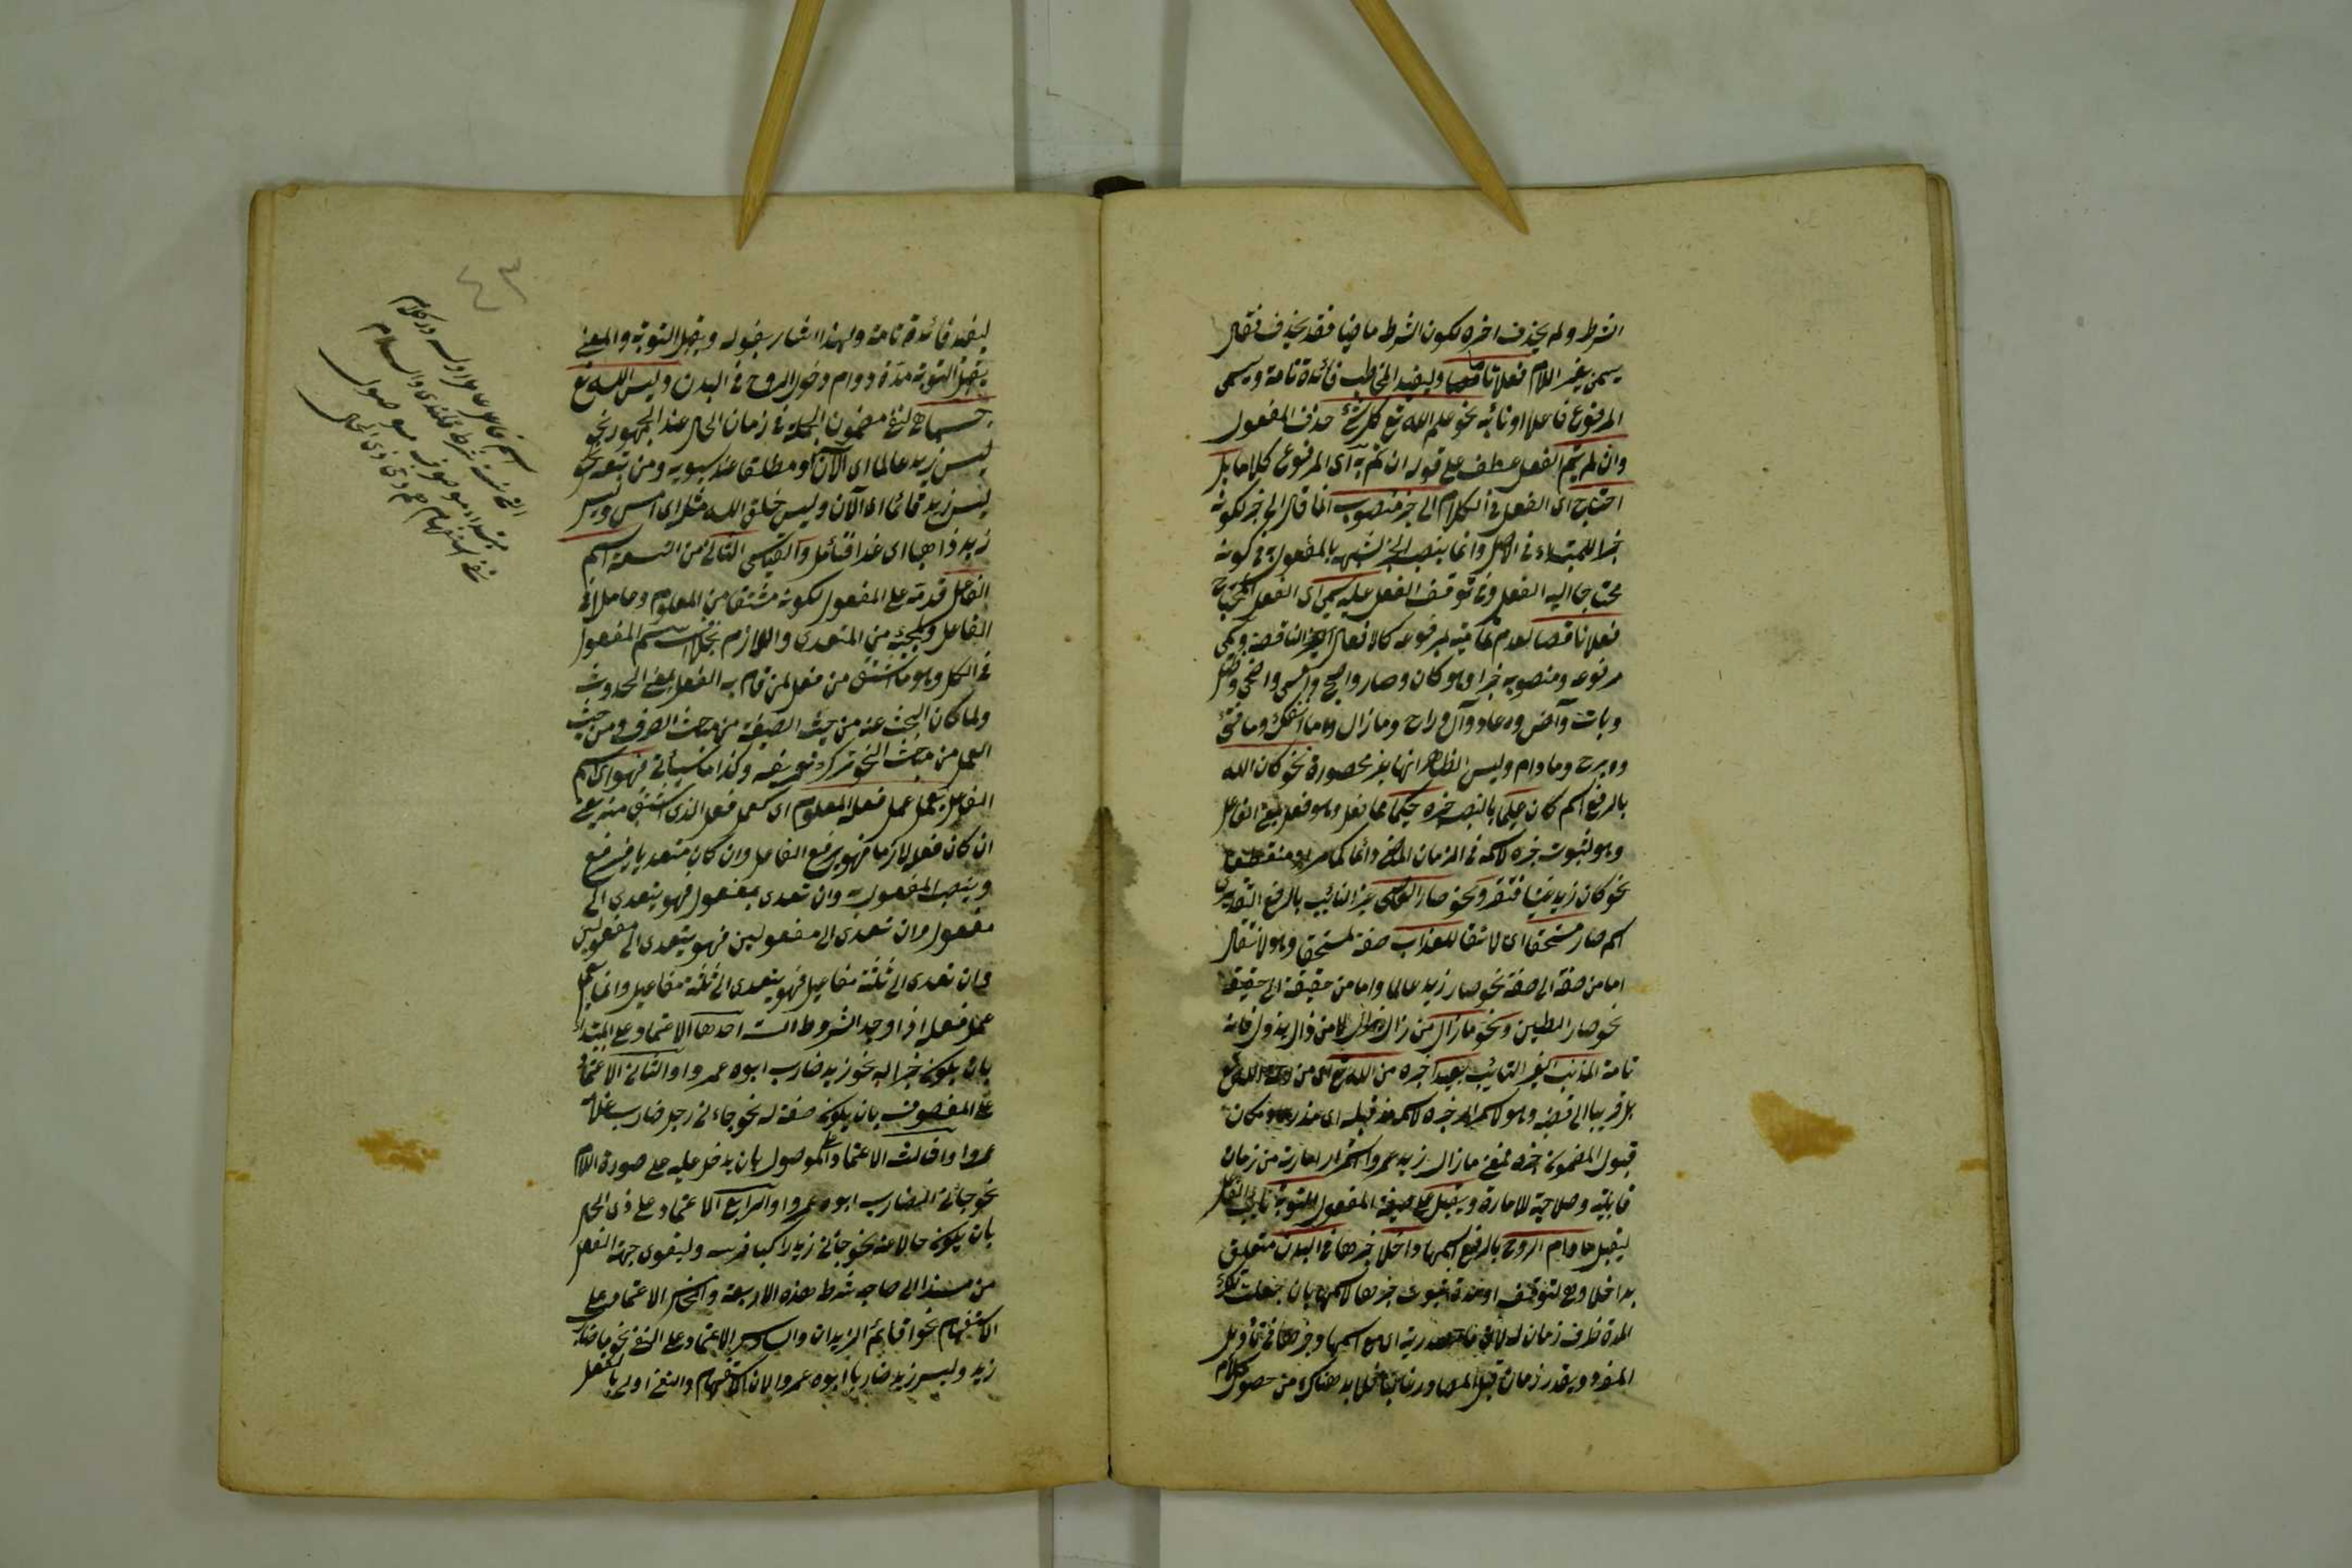 الشرط ولم يحذف اخره لكون الشرط ماضيا فقد يحذف فقال
يسمى بغير اللام فعلا تاما وليفيد المخاطب فائدة تامة ويسمى
المرفوع فاعلا او نائبه نحو علم الله تع كل شئ حذف المفعول
وان لم يتم الفعل عطف على قوله ان تم به اى المرفوع كلاما بل
احتاج اى الفعل فى الكلام الى خبر منصوب انما قال الى خبر لكونه
خبرا للمبتداء فى الاصل وانما ينصب الخبر لشبهه بالمفعول به فى كونه
محتاجا اليه الفعل وفى توقف الفعل عليه يسمى اى الفعل المحتاج
فعلا ناقصا لعدم تماميته بمرفوعه كالافعال الناقصة ويسمى
مرفوعه ومنصوبه خبرا وهو كان وصار واصبح وامسى واضحى وظل
وبات وآض وعاد وآل وراح وما زال وما انفك وما فتئ
وما برح وما دام وليس الظاهر انها غير محصورة نحو كان الله
بالرفع اسم كان عليما بالنصب خبره حكيما
وهو لثبوت خبره لاسمه فى الزمان الماضى دائما كما مر او منقطعا
نحو كان زيد غنيا فافتقر ونحو صار العاصى غير التائب بالرفع التقديرى
اسم صار مستحقا اى لائقا للعذاب صفة لمستحقا وهو لانتقال
اما من صفة الى صفة نحو صار زيد عالما واما من حقيقة الى حقيقة
نحو صار الطين ونحو ما زال من زال يزال لا من زال يزول فانه
تامة المذنب الغير التائب بعيدا خبره من الله تع اى من رحمة الله تع
قبول المضمون خبره فمعنى ما زال زيد عمروا استمرار امارته من زمان
قابليته وصلاحيته للامارة ويقبل على صيغة المفعول التوبة نائب الفاعل
ليقبل ما دام الروح بالرفع اسمها داخلا خبرها فى البدن متعلق
بداخلا وهو لتوقيت امر بمدة ثبوت خبرها لاسمها بان جعلت تلك
المدة ظرف زمان له لان ما مصدرية اى مع اسمها وخبرها فى تأويل
المفرد ويقدر زمان قبل المصادر غالبا فلا بد هناك من حصول كلام
ليفيد فائدة تامة ولهذا اشار بقوله ويقبل التوبة والمعنى
يقبل التوبة مدة دوام دخول الروح فى البدن وليس الله تع
جسما هى لنفى مضمون الجملة فى زمان الحال عند الجمهور نحو
ليس زيد عالما اى الآن او مطلقا عند سيبويه ومن تبعه نحو
ليس زيد قائما اى الآن وليس خلق الله مثله اى امس وليس
زيد ذاهبا اى غدا فتأمل والقياسى الثانى من التسعة اسم
الفاعل قدمه على المفعول لكونه مشتقا من المعلوم وعاملا فى
الفاعل ولمجيئه من المتعدى واللازم بخلاف اسم المفعول
فى الكل وهو ما اشتق من فعل لمن قام به الفعل بمعنى الحدوث
ولما كان البحث عنه من حيث الصيغة من مباحث الصرف ومن حيث
العمل من مباحث النحو ترك تعريفه وكذا ما سيأتى فهو اى اسم
الفاعل يعمل عمل فعله المعلوم اى كعمل فعل الذى اشتق منه يعنى
ان كان فعله لازما فهو يرفع الفاعل وان كان متعديا يرفع
وينصب المفعول به وان تعدى بمفعول فهو يتعدى الى
مفعول وان تعدى الى مفعولين فهو يتعدى الى مفعولين
وان تعدى الى ثلثة مفاعيل فهو يتعدى الى ثلثة مفاعيل وانما يعمل
عمل فعله اذا وجد الشروط الست احدها الاعتماد على المبتدأ
بان يكون خبرا له نحو زيد ضارب ابوه عمروا والثانى الاعتماد
على الموصوف بان يكون صفة له نحو جاءنى رجل ضارب غلامه
عمروا والثالث الاعتماد على الموصول بان يدخل عليه على صورة اللام
نحو جائنى الضارب ابوه عمروا والرابع الاعتماد على ذى الحال
بان يكون حالا عنه نحو جائنى زيد راكبا فرسه وليقوى جهة الفعل
من مسندا الى صاحبه شرط هذه الاربعة والخامس الاعتماد على
الاستفهام نحو اقائم الزيدان والسادس الاعتماد على النفى نحو ما ضارب
زيد وليس زيد ضاربا ابوه عمروا لان الاستفهام والنفى اولى بالفعل
٤٣
اسم فاعل عامل اوله در كلام
مبتداء موصوف موصول
نفى استفهام هم دخى ذى الحال